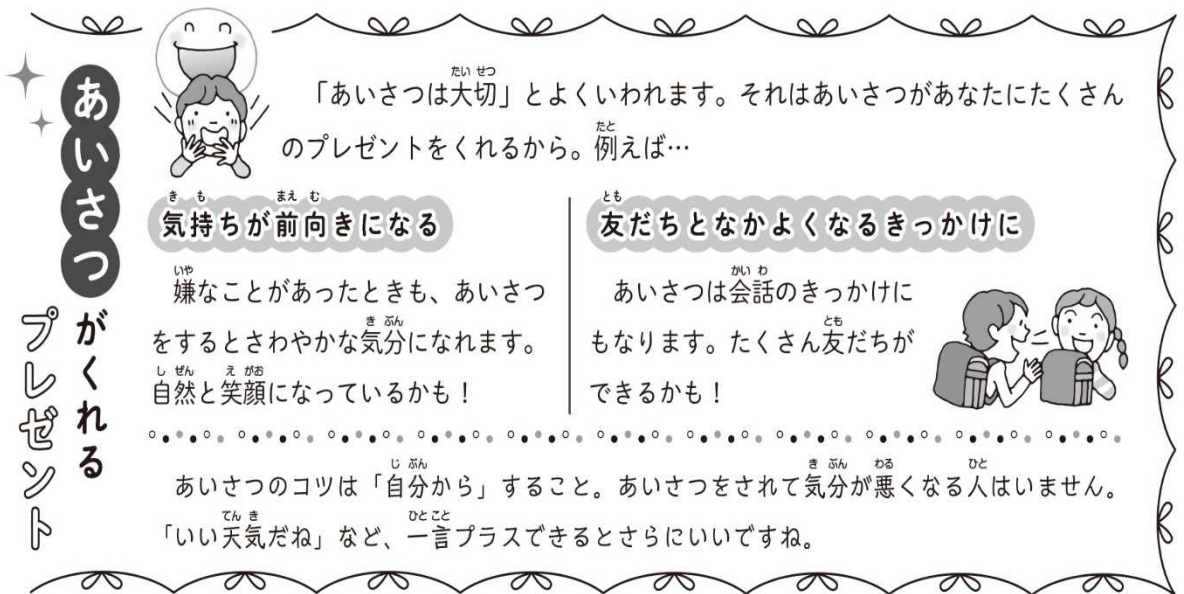 あいさつがくれる
プレゼント
「あいさつは大切」とよくいわれます。それはあいさつがあなたにたくさん
のプレゼントをくれるから。例えば…
気持ちが前向きになる
嫌なことがあったときも、あいさつ
をするとさわやかな気分になれます。
自然と笑顔になっているかも！
友だちとなかよくなるきっかけに
あいさつは会話のきっかけに
もなります。たくさん友だちが
できるかも！
あいさつのコツは「自分から」すること。あいさつをされて気分が悪くなる人はいません。
「いい天気だね」など、一言プラスできるとさらにいいですね。